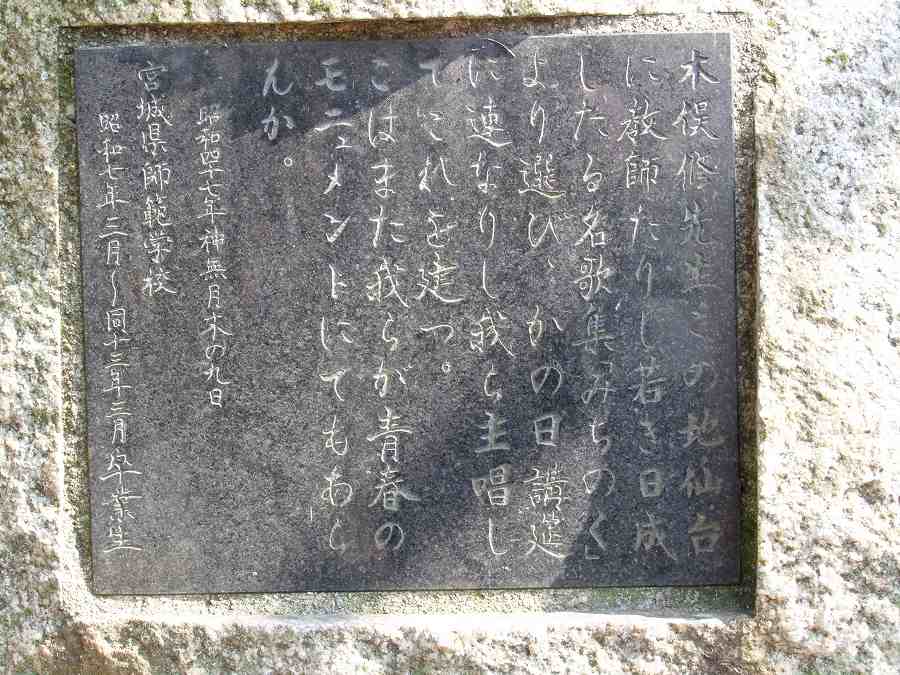 木俣修先生この地仙台
に教師たりし若き日成
したる名歌集「みちのく」
より選び、かの日講筵
に連なりし我ら主唱し
てこれを建つ。
こはまた我らが青春の
モニュメントにてもあら
んか。
昭和四十七年神無月木の九日
宮城県師範学校
昭和七年三月~同十三年三月卒業生